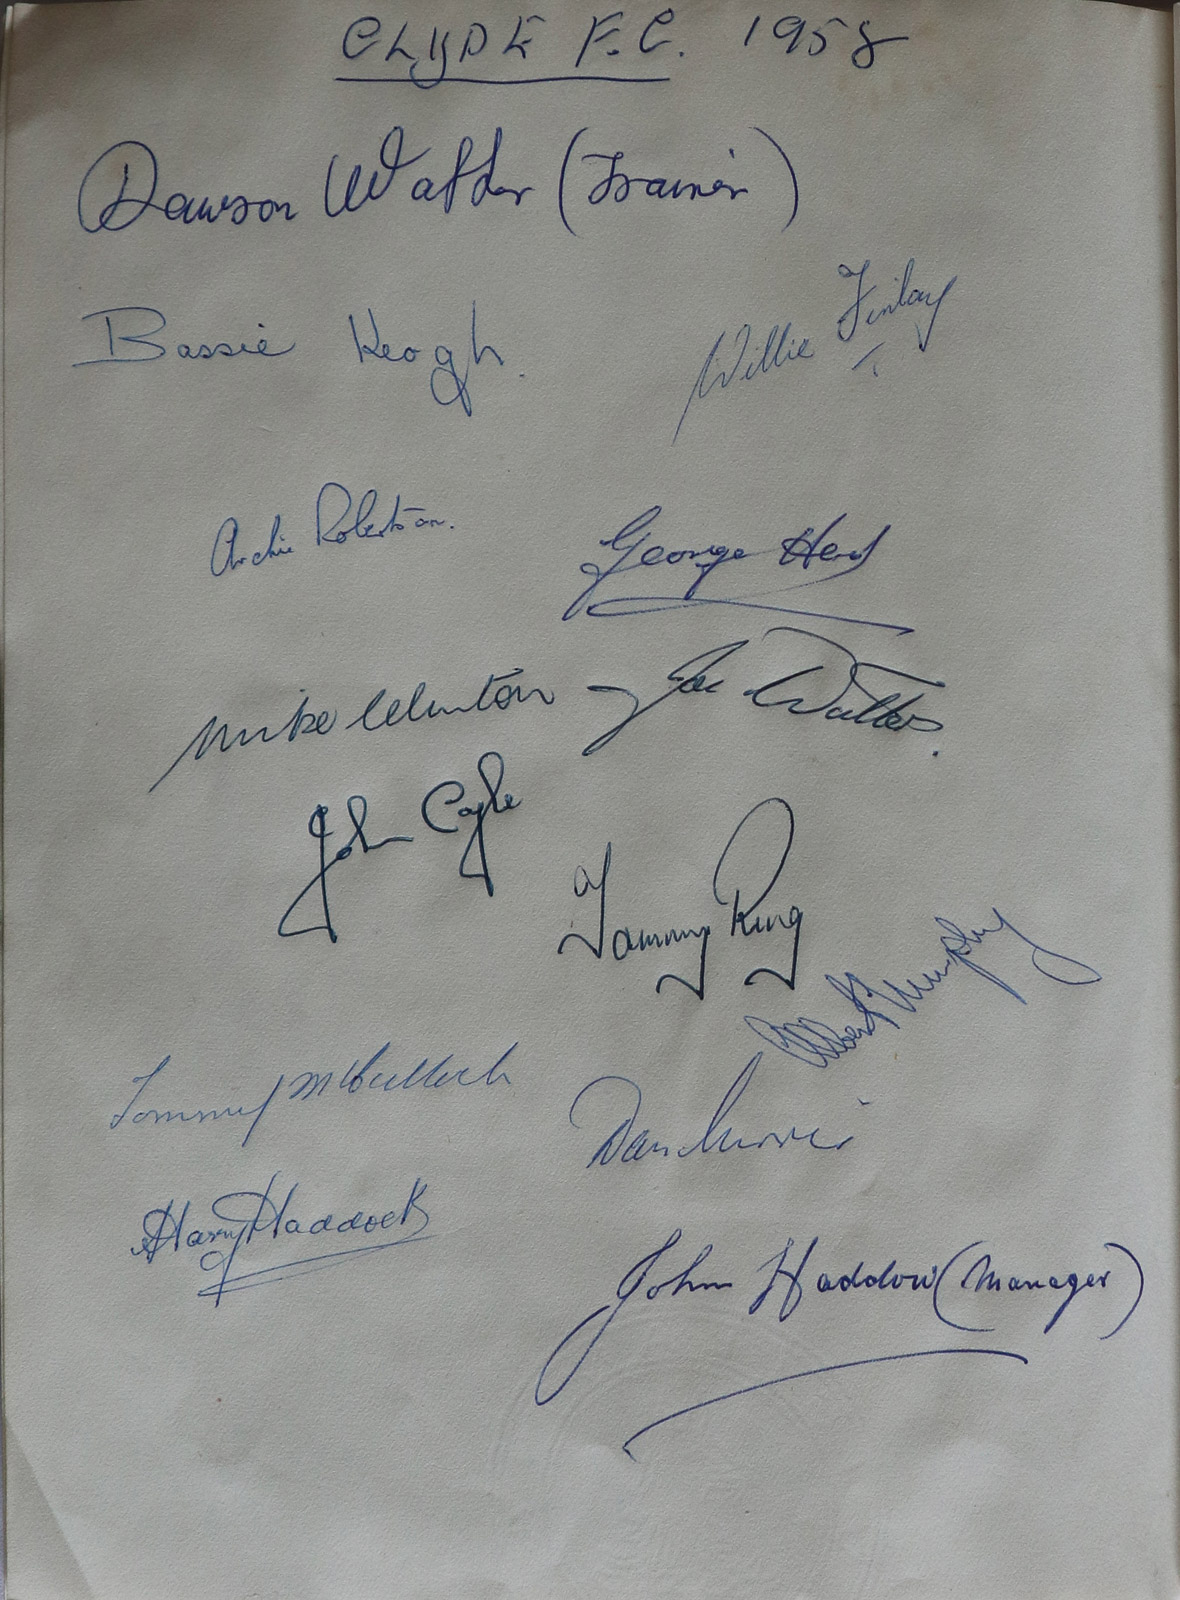 CLYDE F.C. 1958
Dawson Walker (Trainer)
Bassie Keogh.
Willie Finlay
Archie Robertson.
George Herd
Mike Clinton
Joe Walters.
John Coyle
Tommy Ring
Albert Murphy
Tommy McCulloch
Dan Currie
Harry Haddock
John Haddow (Manager)